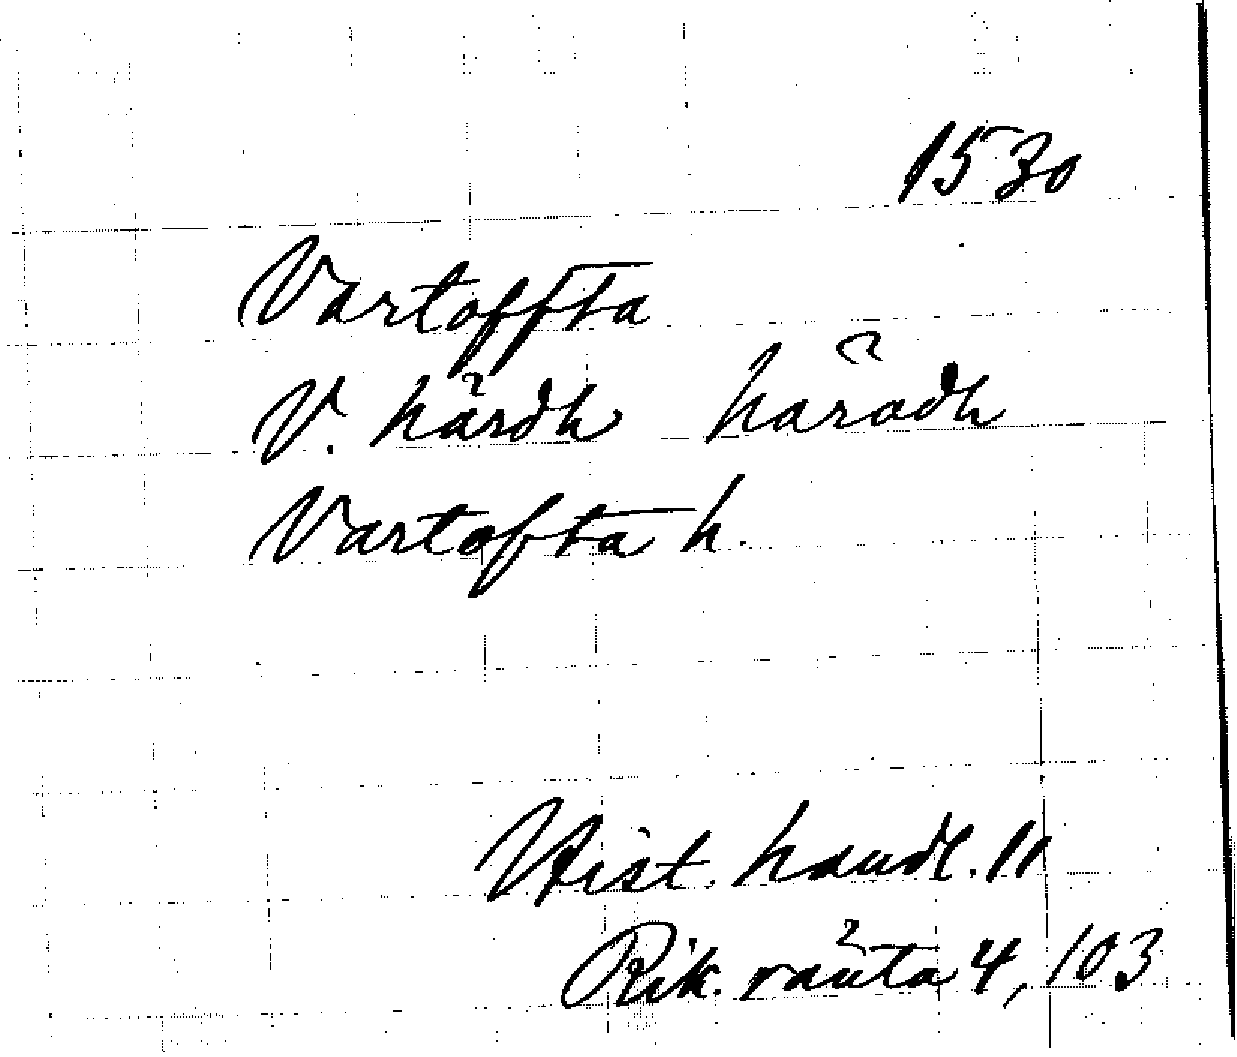 1530
Vartoffta
V. härdh häradh
Vartofta h.
Hist. handl. 11
Rik. ränta 4, 103